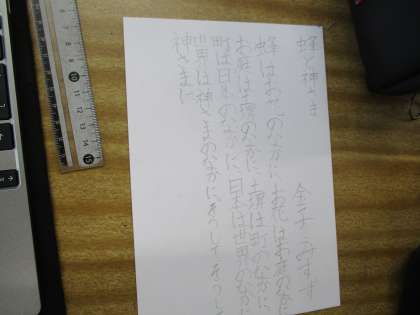 蜂と神さま　金子みすず
蜂はお花のなかにお花はお庭のなかに
お庭は土塀のなかに土塀は町のなかに
町は日本のなかに日本は世界のなかに
世界は神さまのなかにそうしてそうして
神さまに
10
15